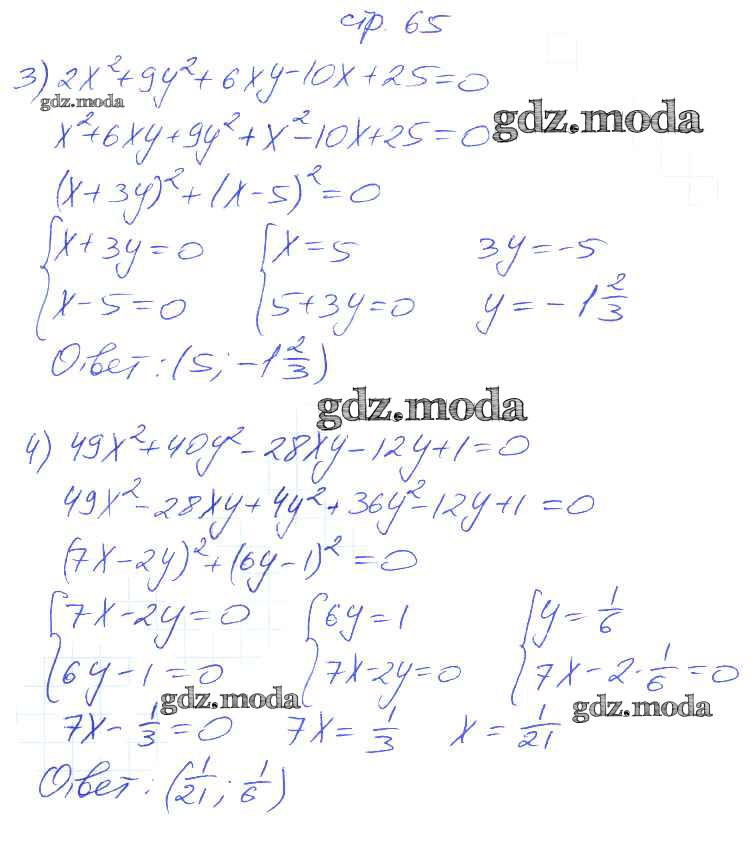 стр. 65
3) 2x²+9y²+6xy-10x+25=0
gdz.moda
x²+6xy+9y²+x²-10x+25=0
gdz.moda
(x+3y)²+(x-5)²=0
{x+3y=0 {x=5 3y=-5
x-5=0 5+3y=0 y=-1 2/3
Ответ: (5; -1 2/3)
gdz.moda
4) 49x²+40y²-28xy-12y+1=0
49x²-28xy+4y²+36y²-12y+1=0
(7x-2y)²+(6y-1)²=0
{7x-2y=0 {6y=1 {y=1/6
6y-1=0 7x-2y=0 7x-2·1/6=0
gdz.moda
gdz.moda
7x-1/3=0 7x=1/3 x=1/21
Ответ: (1/21; 1/6)